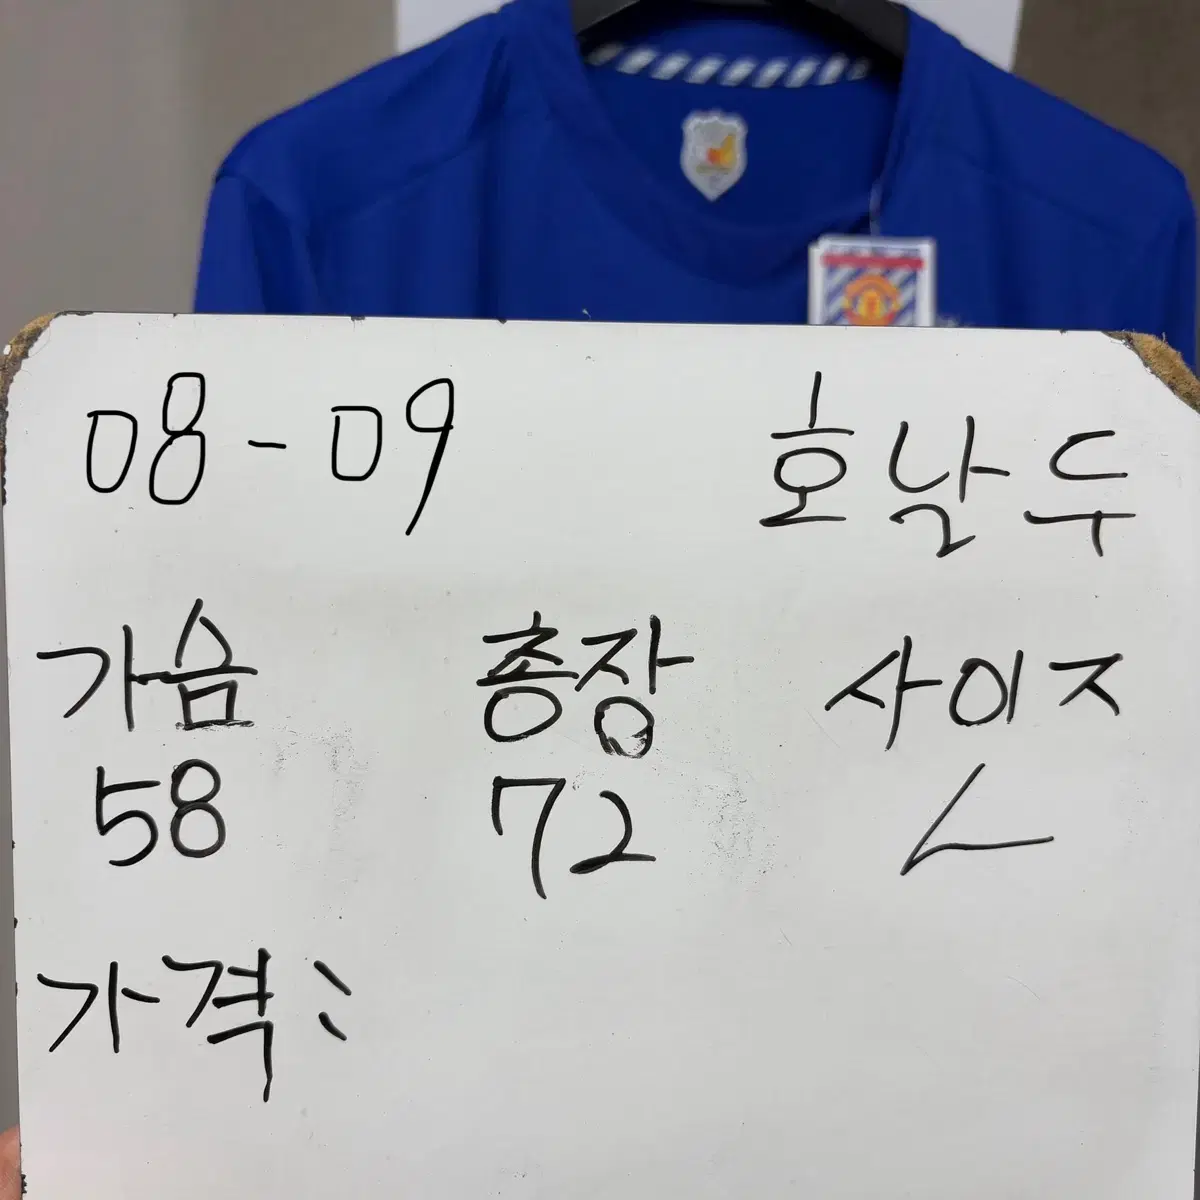 08-09 호날두
가슴 총장 사이즈
58 72 L
가격: